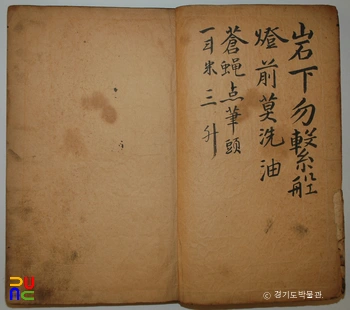 岩下勿繫船
燈前莫洗油
蒼蝿点筆頭
一斗米三升
punc
© 경기도박물관